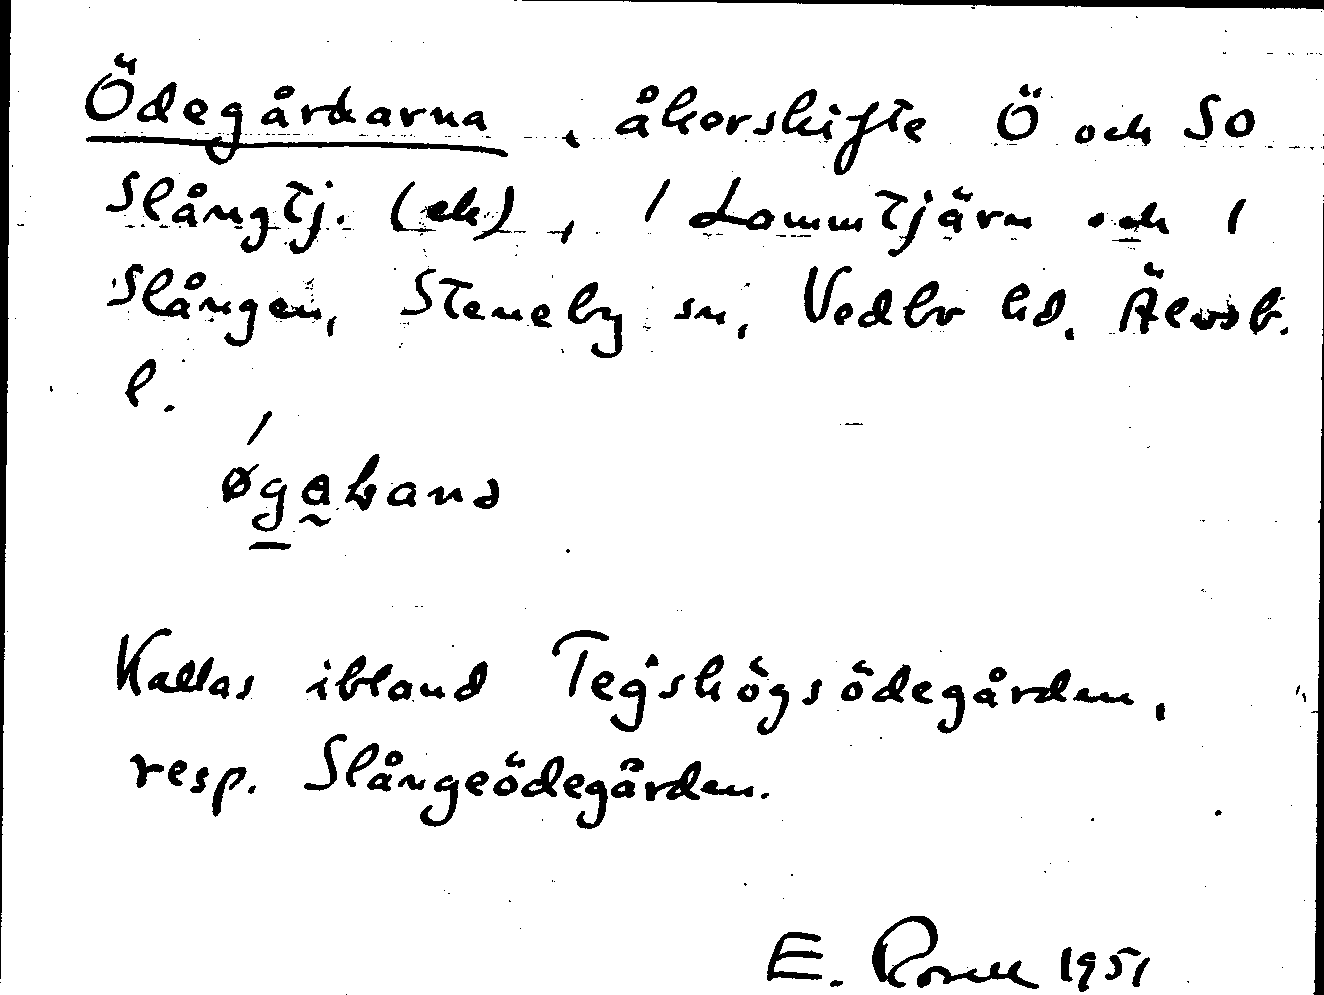 Ödegårdarna, åkerskifte Ö och SO
Slångtj. (ek), 1 Lommtjärn och 1
Slången, Steneby sn, Vedbo hd. Älvsb.
l.
Kallas ibland Tegshögsödegården,
resp. Slångeödegården.
E. Rosell 1951